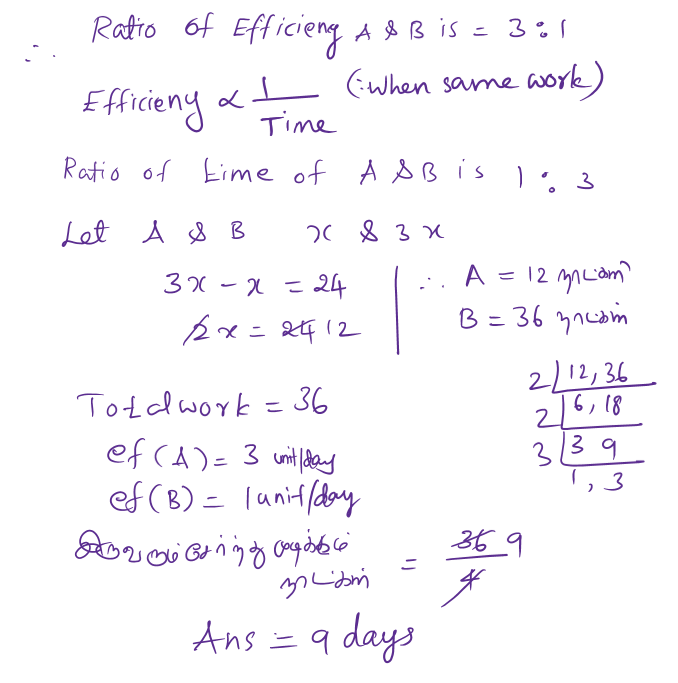 ∴ Ratio of Efficieng A & B is = 3:1
Efficieny ∝ 1/Time (∵when same work)
Ratio of time of A & B is 1 : 3
Let A & B x & 3x
3x - x = 24
2x = 24 12
∴ A = 12 நாட்கள்
B = 36 நாட்கள்
Total work = 36
ef (A) = 3 unit/day
ef (B) = 1 unit/day
2 | 12, 36
2 | 6, 18
3 | 3 9
1, 3
இருவரும் சேர்ந்து முடிக்கும்
நாட்கள் = 36/4 9
Ans = 9 days